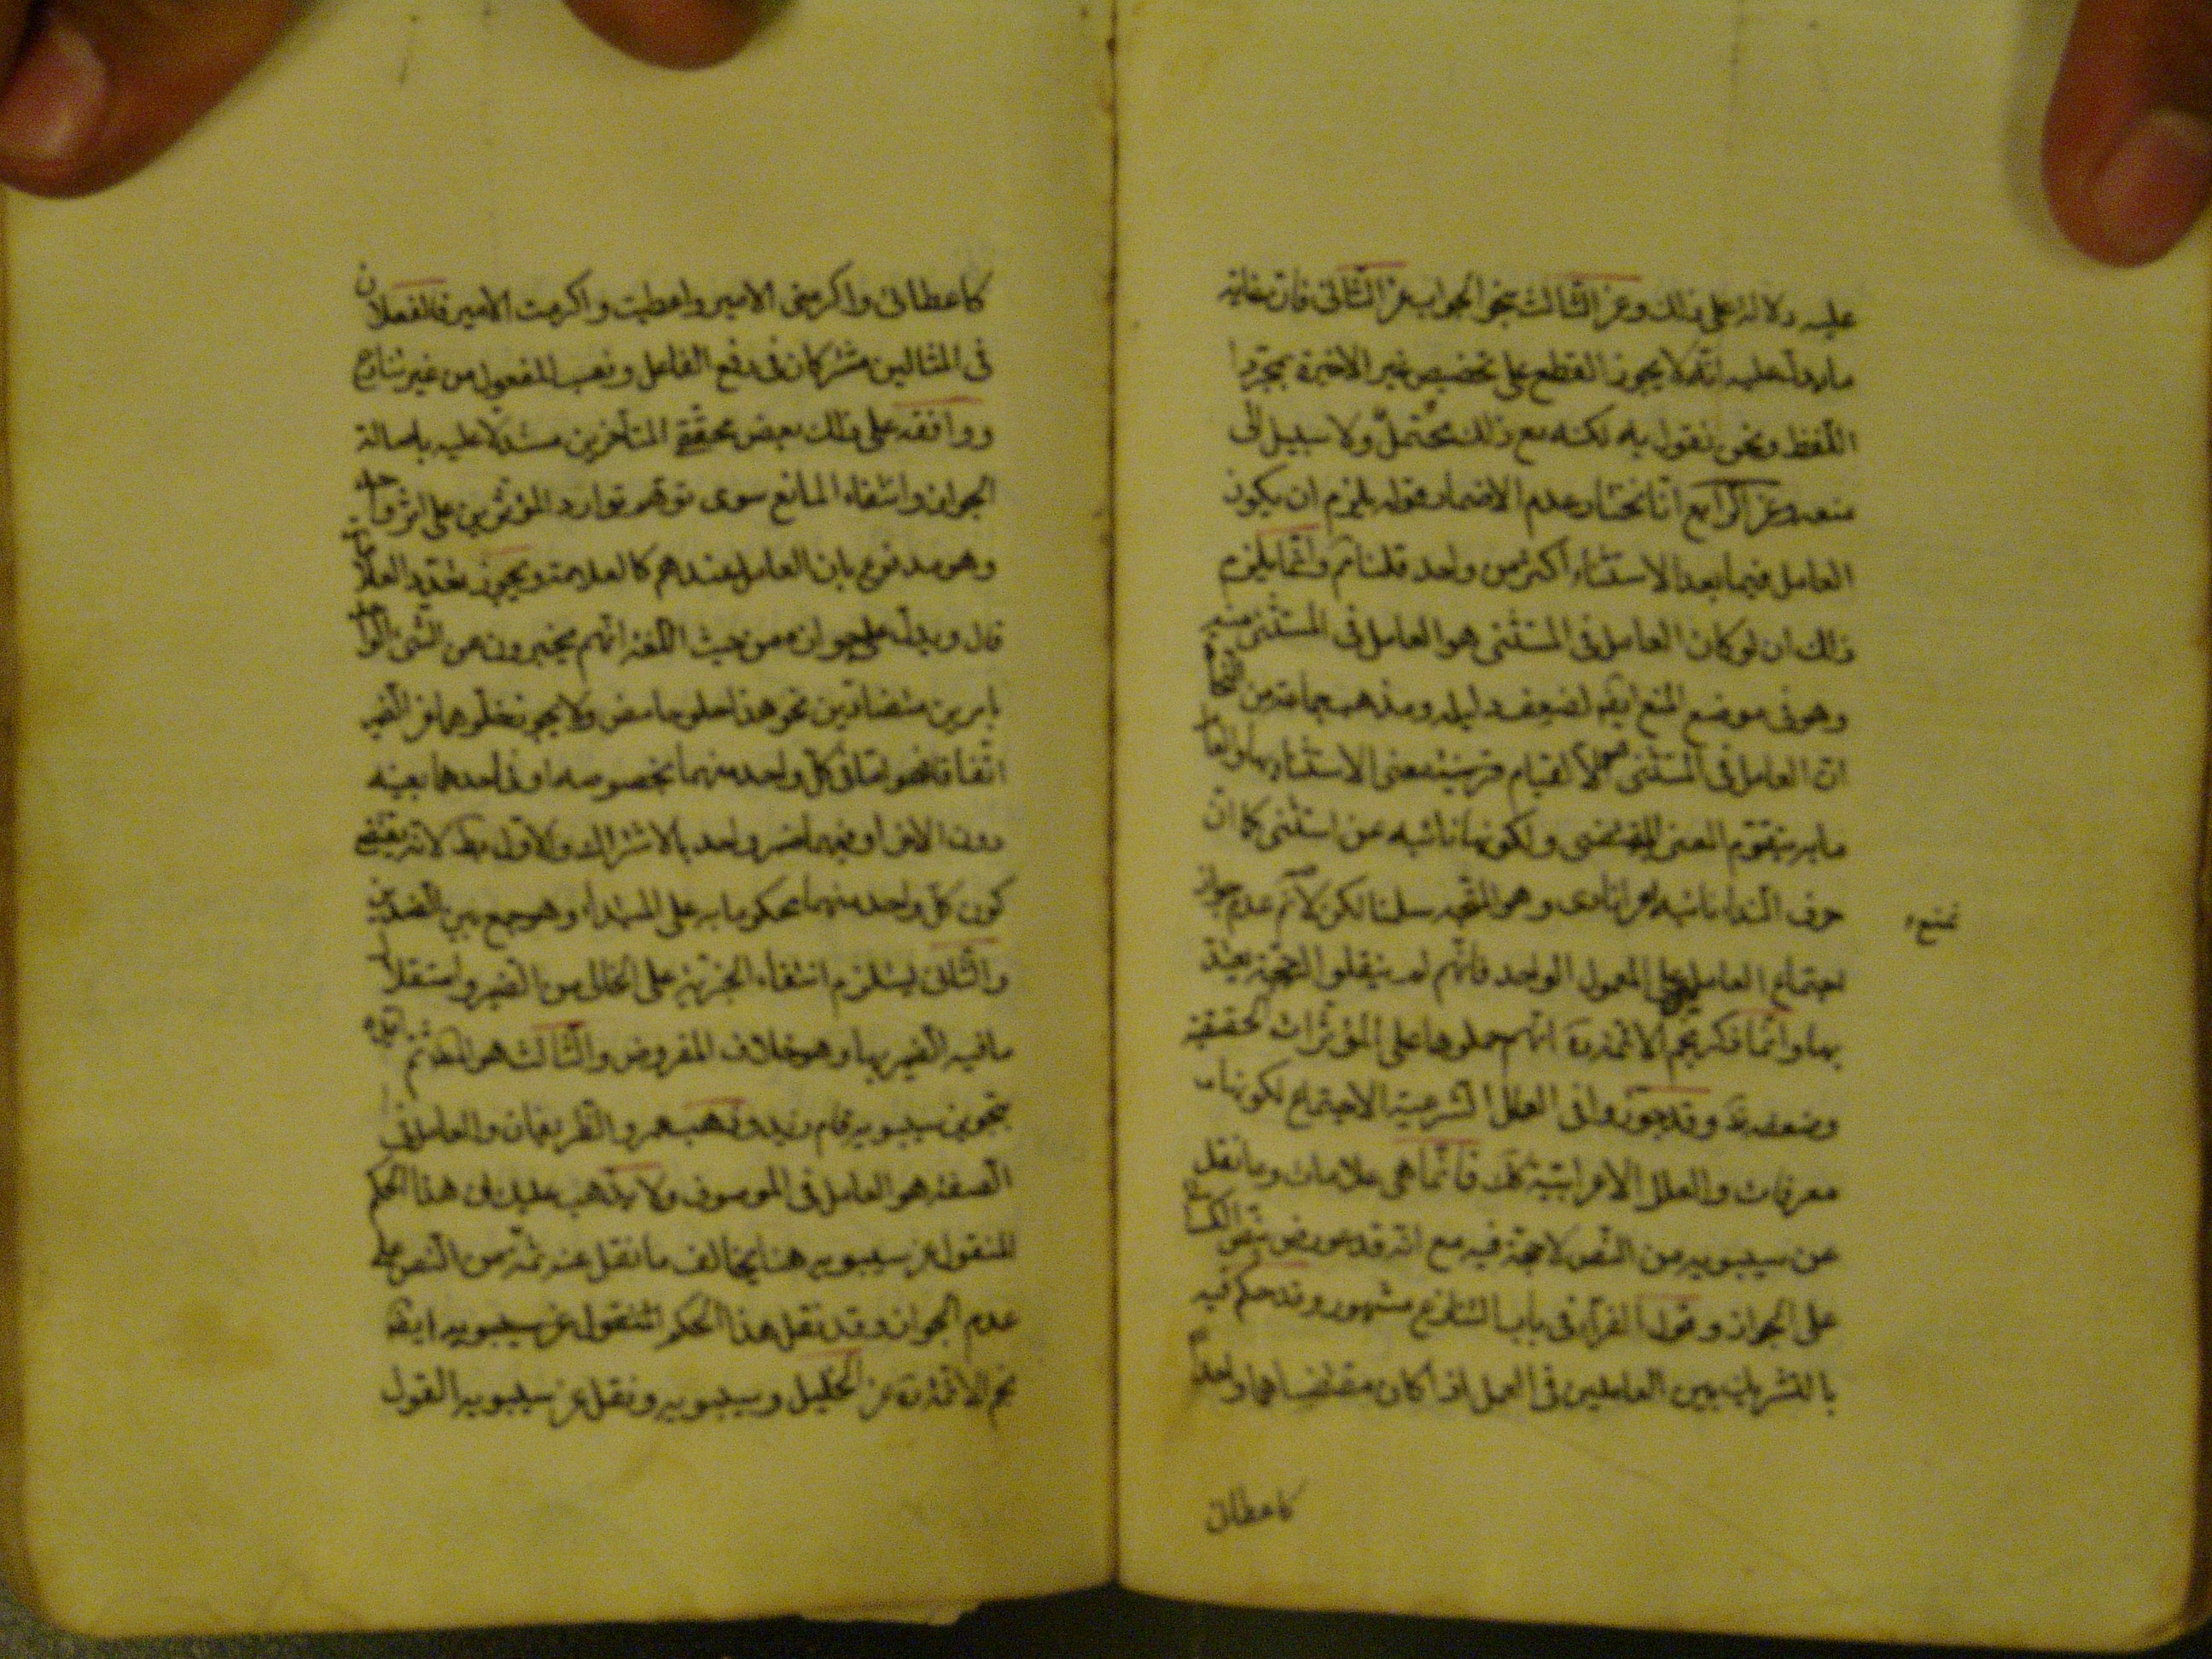 عليه دلالة على ذلك وعن الثالث بنحو الجواب عن الثاني فان غاية
ما يدل عليه انه لا يجوز القطع على تخصيص غير الاخيرة بمجرد
اللفظ ونحن نقول به لكنه مع ذلك محتمل ولا سبيل الى
منعه وعن الرابع انا نختار عدم الاضمار قوله يلزم ان يكون
العامل فيما بعد الاستثناء اكثر من واحد قلنا ثم وانما يلزم
ذلك ان لو كان العامل في المستثنى هو العامل في المستثنى منه
وهو في موضع المنع ايضا لضعف دليله ومذهب جماعة من النحاة
ان العامل في المستثنى الا لقيام معنى الاستثناء بها والعامل
ما به يتقوم المعنى المقتضى ولكونها نائبه عن استثنى كما ان
حرف النداء نائبه عن انادى وهو المتجه سلمنا لكن لانم عدم جواز
اجتماع العامل على المعمول الواحد فانهم لم ينقلوا حجة يعتد
بها وانما ذكر نجم الائمة ره انهم حملوها على المؤثرات الحقيقية
وضعفه ظ وقد جوزوا في العلل الشرعية الاجتماع لكونها
معرفات والعلل الاعرابية كك فانما هي علامات وما نقل
عن سيبويه من النص لا حجة فيه مع انه قد عورض بنص الكسائي
على الجواز وقول الفراء في باب التنازع مشهور وقد حكم فيه
بالتشريك بين العاملين في العمل اذا كان مقتضاهما واحدا
نمنع
كاعطانى
كاعطانى واكرمنى الامير واعطيت واكرمت الامير فالفعلان
في المثالين مشتركان في رفع الفاعل ونصب المفعول من غير تنازع
ووافقه على ذلك بعض محققي المتأخرين مستدلا عليه باصالة
الجواز وانتفاء المانع سوى توهم توارد المؤثرين على اثر واحد
وهو مدفوع بان العامل عندهم كالعلامة ويجوز تعدد العلامات
قال ويدل على جوازه من حيث اللغة انهم يخبرون عن الشئ الواحد
بامرين متضادين نحو هذا حلو حامض ولا يجوز خلوهما عن الضمير
اتفاقا فهو اما في كل واحد منهما بخصوصه او في احدهما بعينه
دون الاخر او فيهما ضمير واحد بالاشتراك والاول بط لانه يقتضى
كون كل واحد منهما محكوما به على المبتداء وهو جمع بين الضدين
والثانى يستلزم انتفاء الخبرية عن الخالى من الضمير واستقلال
ما فيه الضمير بها وهو خلاف المفروض والثالث هو المط ثم ايده
بتجويز سيبويه قام زيد وذهب عمرو الظريفان والعامل في
الصفة هو العامل في الموصوف ولا يذهب عليك ان هذا الحكم
المنقول عن سيبويه هنا يخالف ما نقل عنه ثمه من النص على
عدم الجواز وقد نقل هذا الحكم المنقول عن سيبويه ايضا
نجم الائمة ره عن الخليل وسيبويه ونقل عن سيبويه القول